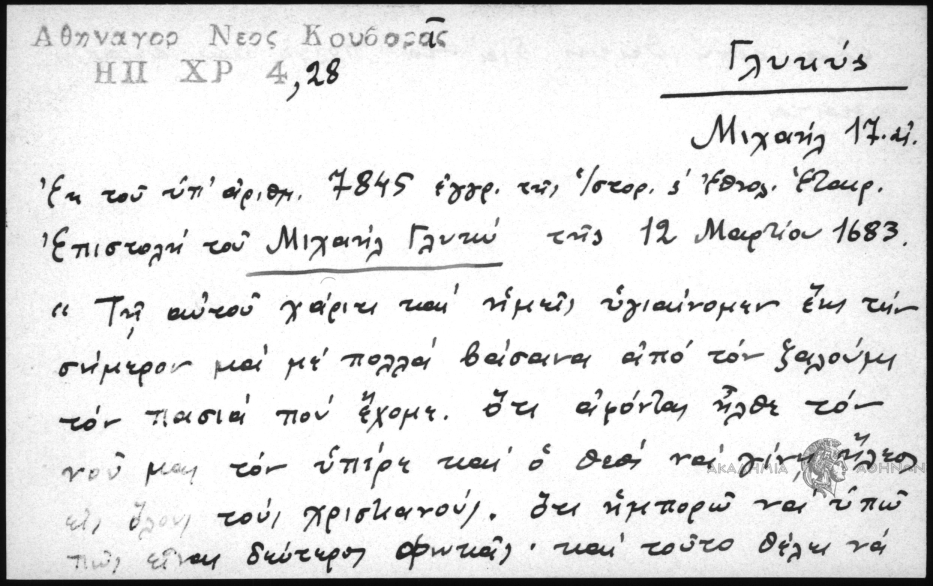 Αθηναγορ Νεος Κουβαρᾶς
ΗΠ ΧΡ 4,28
Γλυκύς
Μιχαήλ 17.αἰ.
Ἐκ τοῦ ὑπ' ἀριθμ. 7845 ἐγγρ. τῆς Ἱστορ. κ' Ἐθνολ. Ἑταιρ.
Ἐπιστολή τοῦ Μιχαήλ Γλυκύ τῆς 12 Μαρτίου 1683.
“ Τῇ αὐτοῦ χάριτι καί ἡμεῖς ὑγιαίνομεν ἕως τήν
σήμερον μαί μέ πολλά βάσανα ἀπό τόν ζαλούμη
τόν πασιά πού ἔχομε. ὅτι ἀφόντας ἦλθε τόν
νοῦ μας τόν ὑπῆρε καί ὁ θεός ναί γίνῃ ἵλεος
εἰς ὅλους τούς χριστιανούς. ὅτι ἠμπορῶ να ὑπῶ
πῶς εἶναι δεύτερος Φωκᾶς. καί τοῦτο θέλει νά
ΑΚΑΔΗΜΙΑ ΑΘΗΝΩΝ